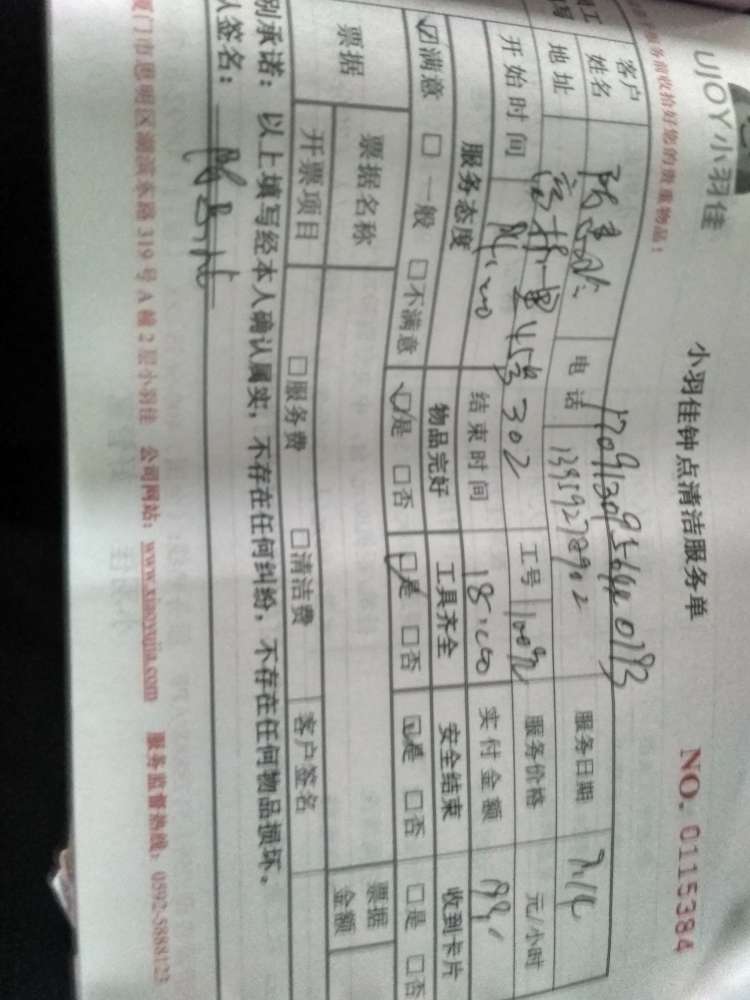 UJOY小羽佳
小羽佳钟点清洁服务单
NO. 0115384
服务前收拾好您的贵重物品!
客户姓名
电话 13959278902
服务日期
地址 302
工号
服务价格 元/小时
开始时间
结束时间 18:00
实付金额
服务态度 物品完好 工具齐全 安全结束 收到卡片
☑满意 □一般 □不满意 ☑是 □否 ☑是 □否 ☑是 □否 □是 □否
票据 票据名称 票据金额
开票项目 □服务费 □清洁费 客户签名
别承诺:以上填写经本人确认属实,不存在任何纠纷,不存在任何物品损坏。
人签名:
厦门市思明区湖滨东路319号A幢2层小羽佳 公司网站:www.xiaoyujia.com 服务监督热线:0592-5888123